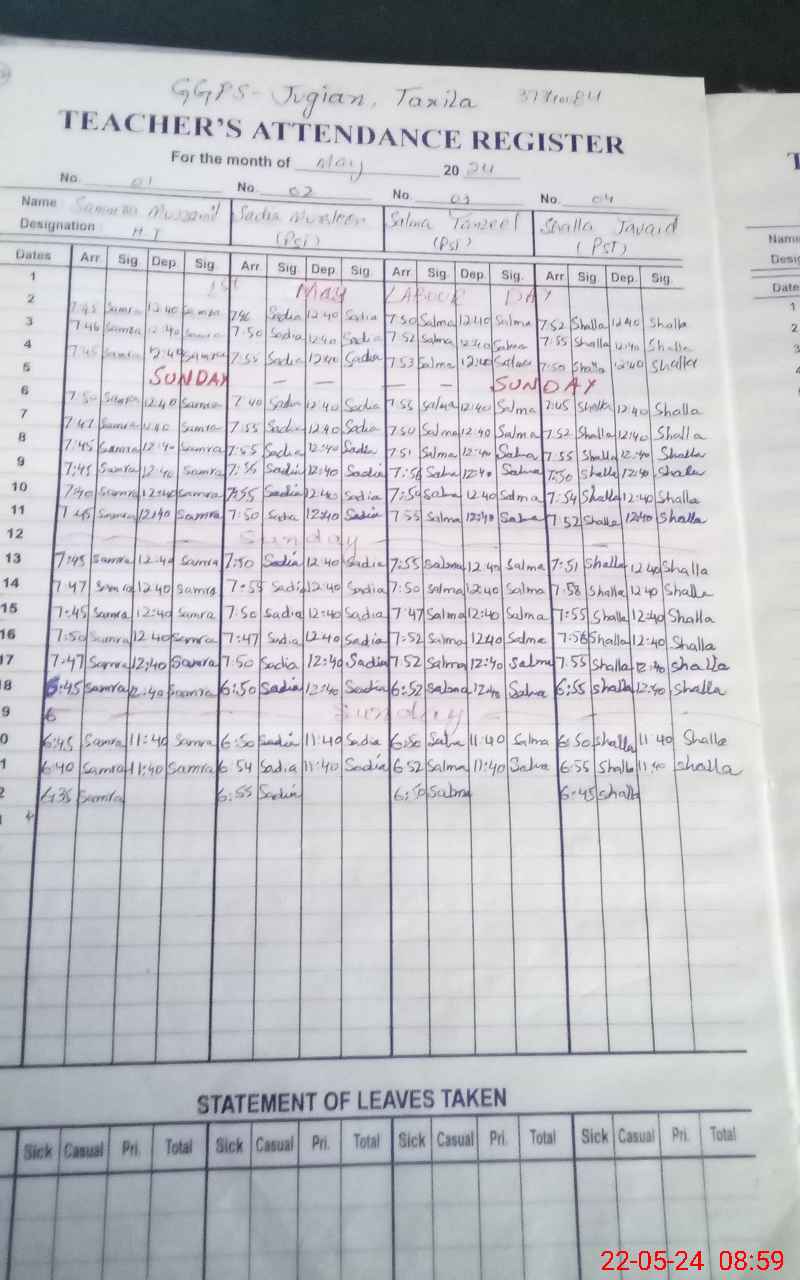 GGPS - Jugian, Taxila
TEACHER'S ATTENDANCE REGISTER
For the month of May 2024
No. 01 No. 02 No. 03 No. 04
Name Sadia Salma Tanzeel Shalla Javaid
Designation HT (PST) (PST) (PST)
Dates Arr. Sig. Dep. Sig. Arr. Sig. Dep. Sig. Arr. Sig. Dep. Sig. Arr. Sig. Dep. Sig.
1 1st May LABOUR DAY
2 7:45 Samra 12:40 Samra Sadia 12:40 Sadia 7:50 Salma 12:40 Salma 7:52 Shalla 12:40 Shalla
3 7:46 Samra 12:40 Samra 7:50 Sadia 12:40 Sadia 7:52 Salma 12:40 Salma 7:55 Shalla 12:40 Shalla
4 7:45 Samra 12:40 Samra 7:55 Sadia 12:40 Sadia 7:53 Salma 12:40 Salma 7:50 Shalla 12:40 Shalla
5 SUNDAY - - - - SUNDAY
6 7:50 Samra 12:40 Samra 7:40 Sadia 12:40 Sadia 7:55 Salma 12:40 Salma Shalla 12:40 Shalla
7 7:47 Samra 12:40 Samra 7:55 Sadia 12:40 Sadia 7:50 Salma 12:40 Salma 7:52 Shalla 12:40 Shalla
8 7:45 Samra 12:40 Samra 7:55 Sadia 12:40 Sadia 7:51 Salma 12:40 Salma 7:55 Shalla 12:40 Shalla
9 7:45 Samra 12:40 Samra 7:55 Sadia 12:40 Sadia 7:56 Salma 12:40 Salma 7:50 Shalla 12:40 Shalla
10 7:40 Samra 12:40 Samra 7:55 Sadia 12:40 Sadia 7:50 Salma 12:40 Salma 7:54 Shalla 12:40 Shalla
11 7:45 Samra 12:40 Samra 7:50 Sadia 12:40 Sadia 7:55 Salma 12:40 Salma 7:52 Shalla 12:40 Shalla
12 Sunday
13 7:45 Samra 12:40 Samra 7:50 Sadia 12:40 Sadia 7:55 Salma 12:40 Salma 7:51 Shalla 12:40 Shalla
14 7:47 Samra 12:40 Samra 7:55 Sadia 12:40 Sadia 7:50 Salma 12:40 Salma 7:58 Shalla 12:40 Shalla
15 7:45 Samra 12:40 Samra 7:50 Sadia 12:40 Sadia 7:47 Salma 12:40 Salma 7:55 Shalla 12:40 Shalla
16 7:50 Samra 12:40 Samra 7:47 Sadia 12:40 Sadia 7:52 Salma 12:40 Salma 7:56 Shalla 12:40 Shalla
17 7:47 Samra 12:40 Samra 7:50 Sadia 12:40 Sadia 7:52 Salma 12:40 Salma 7:55 Shalla 12:40 Shalla
8 6:45 Samra 12:40 Samra 6:50 Sadia 12:40 Sadia 6:52 Salma 12:40 Salma 6:55 Shalla 12:40 Shalla
9 6 Sunday
0 6:45 Samra 11:40 Samra 6:50 Sadia 11:40 Sadia 6:50 Salma 11:40 Salma 6:50 Shalla 11:40 Shalla
1 6:40 Samra 11:40 Samra 6:54 Sadia 11:40 Sadia 6:52 Salma 11:40 Salma 6:55 Shalla 11:40 Shalla
2 6:35 Samra 6:55 Sadia 6:50 Salma 6:45 Shalla
STATEMENT OF LEAVES TAKEN
Sick Casual Pri. Total Sick Casual Pri. Total Sick Casual Pri. Total Sick Casual Pri. Total
22-05-24 08:59